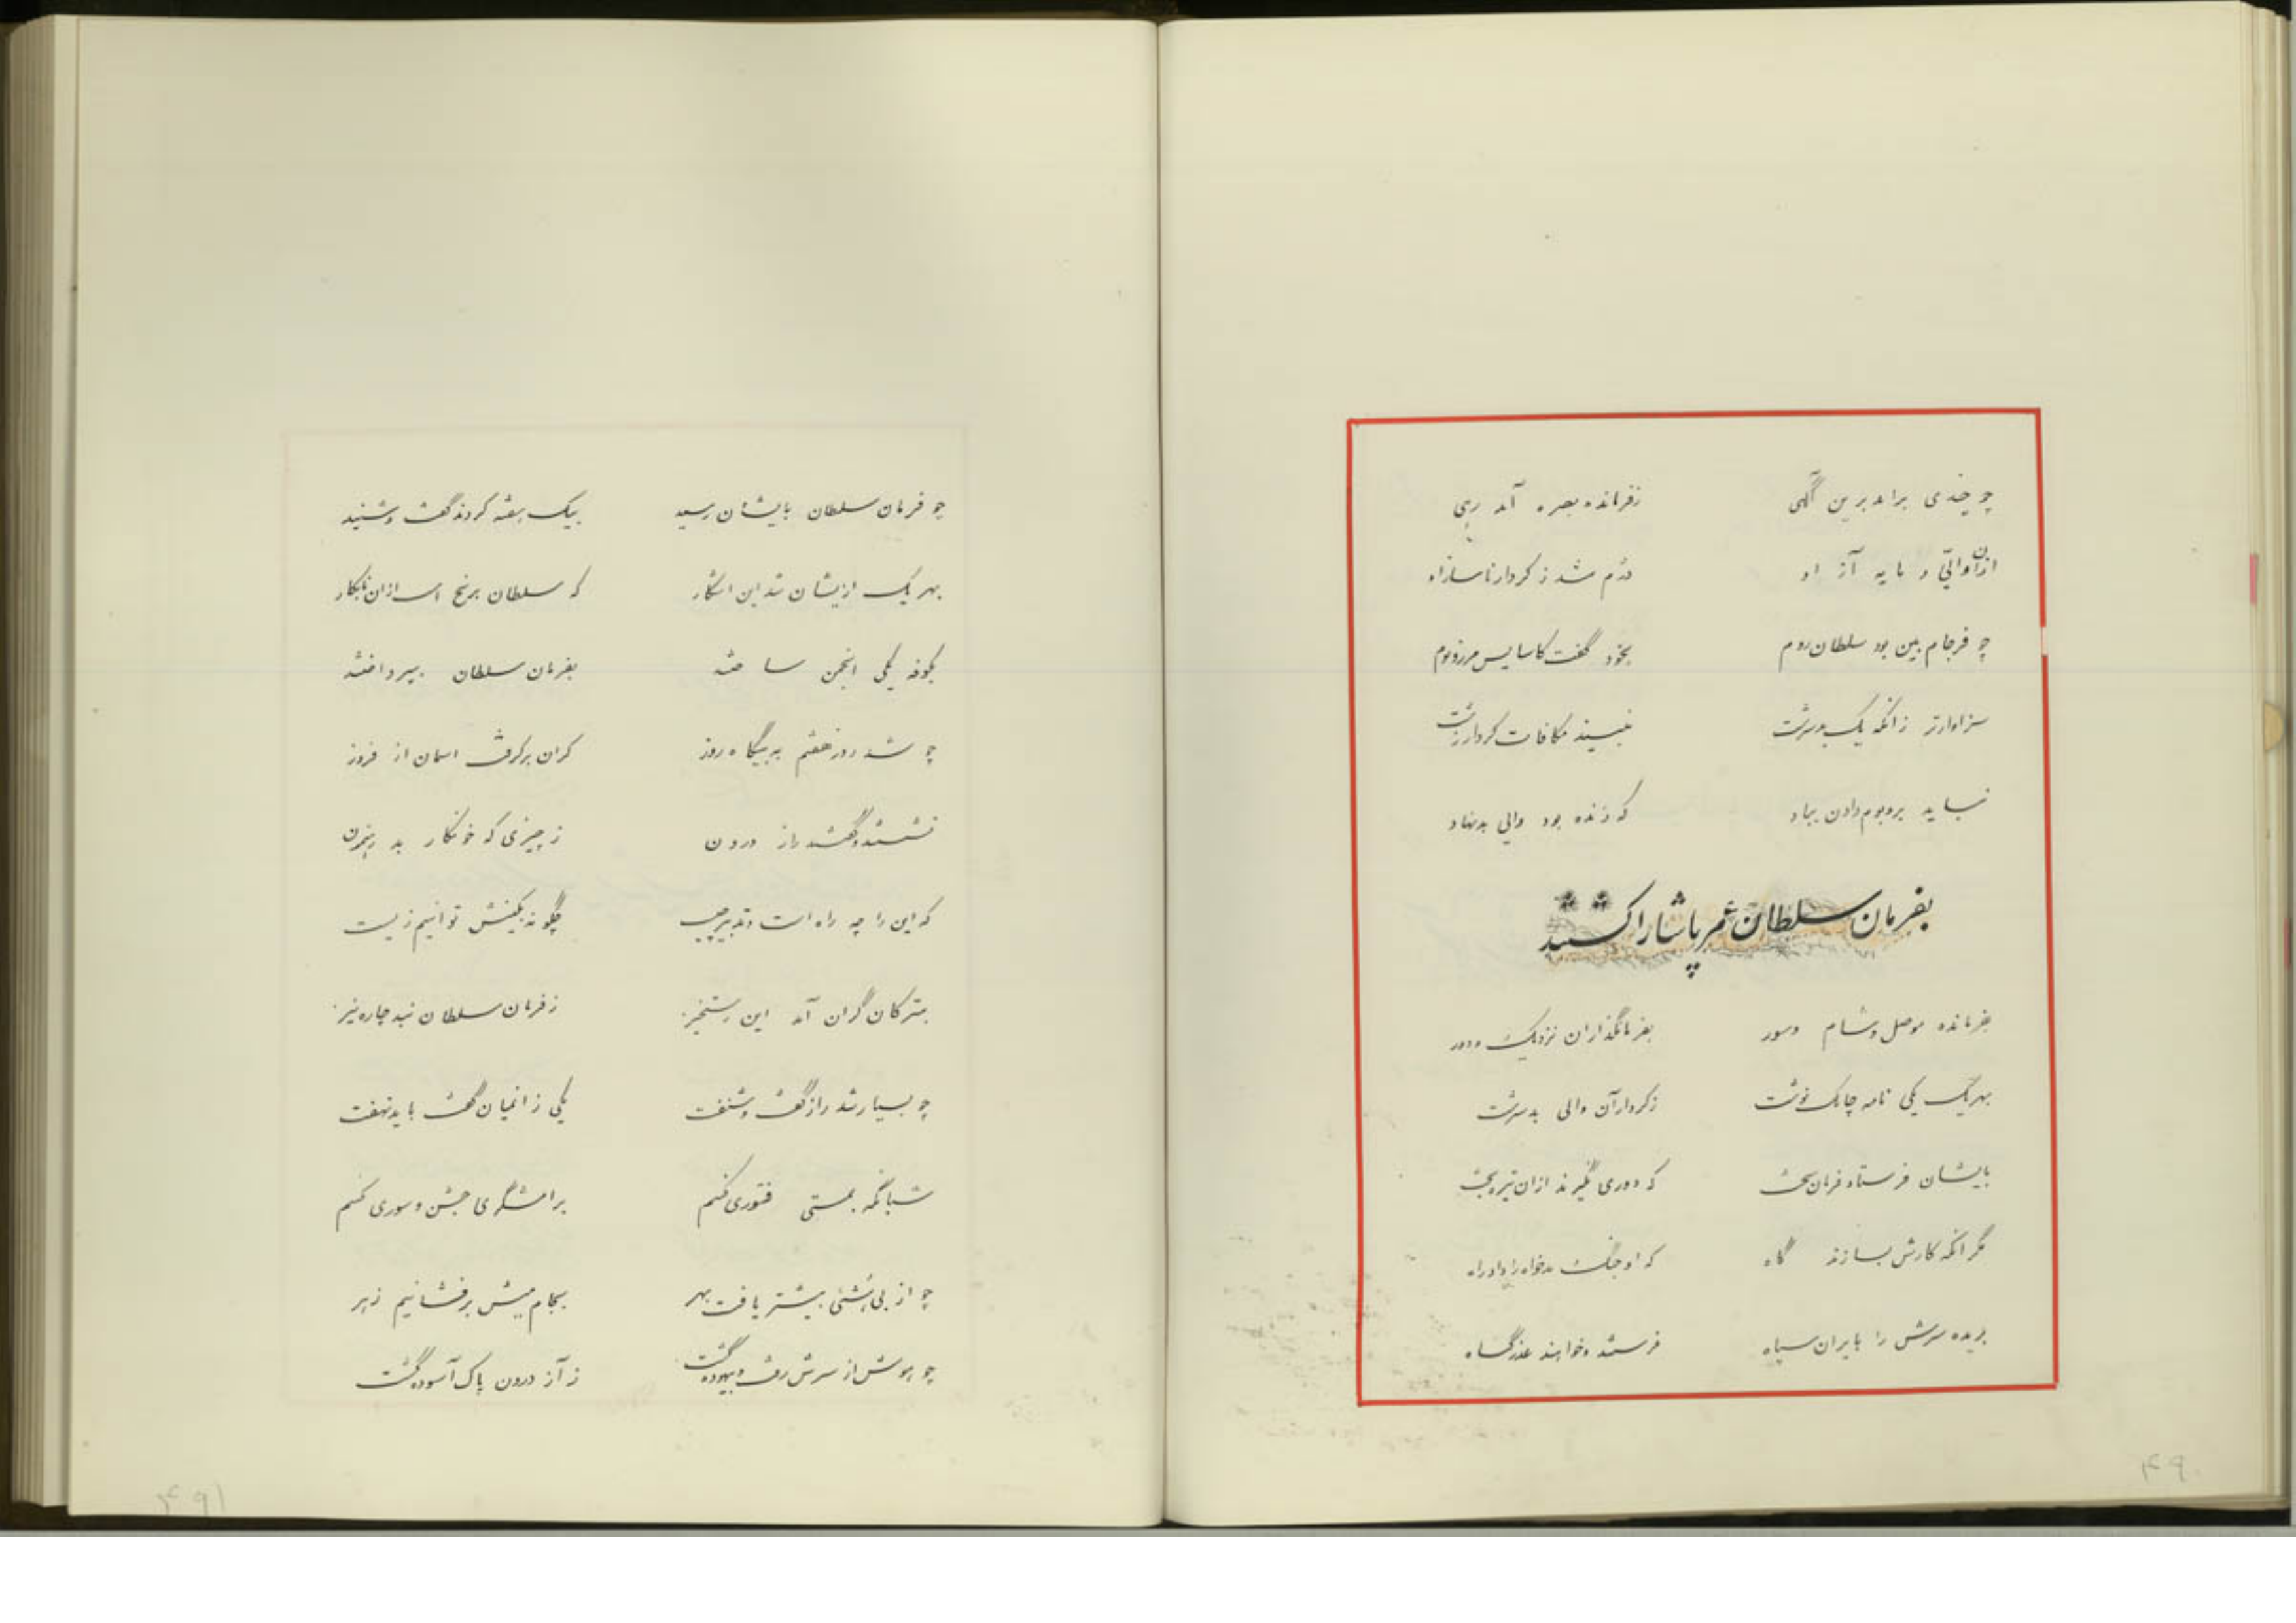 چو چندی برامد برین آگهی زفرمانده بصره آمد رهی
ازان والی و مایه آز او دژم شد ز کردار ناساز او
چو فرجام بین بود سلطان روم بخود گفت کاسایس مرز و بوم
سزاوارتر زانکه یک بدسرشت نبیند مکافات کردار زشت
نباید بر و بوم دادن بباد که زنده بود والی بدنهاد
بفرمان سلطان عمر پاشا را کشتند
بفرمانده موصل و شام و سور بفرمانگذاران نزدیک و دور
بهریک یکی نامه چابک نوشت زکردار آن والی بدسرشت
بایشان فرستاد فرمان سخت که دوری نگیرند ازان تیره بخت
مگر انکه کارش بسازند گاه که او جنگ بدخواه را داد راه
بریده سرش را بایران سپاه فرستند و خواهند عذر گناه
۴۹۰
چو فرمان سلطان بایشان رسید بیک هفته کردند گفت و شنید
بهر یک ازیشان شد این اشکار که سلطان برنج است ازان نابکار
بکوفه یکی انجمن ساختند بفرمان سلطان بپرداختند
چو شد روز هفتم به بیگاه روز کران برگرفت اسمان از فروز
نشستند و گفتند راز درون ز چیزی که خونکار بد رهنمون
که این را چه راه است و تدبیر چیست چگونه بکینش توانیم زیست
بترکان گران آمد این رستخیز زفرمان سلطان نبد چاره نیز
چو بسیار شد راز گفت و شنفت یکی زانمیان گفت باید نهفت
شبانگه بمستی فتوری کنیم برامشگری جشن و سوری کنیم
چو از بی‌هشی بیشتر یافت بهر بجام میش برفشانیم زهر
چو هوش از سرش رفت و بیهوده گشت ز آز درون پاک آسوده گشت
۴۹۱